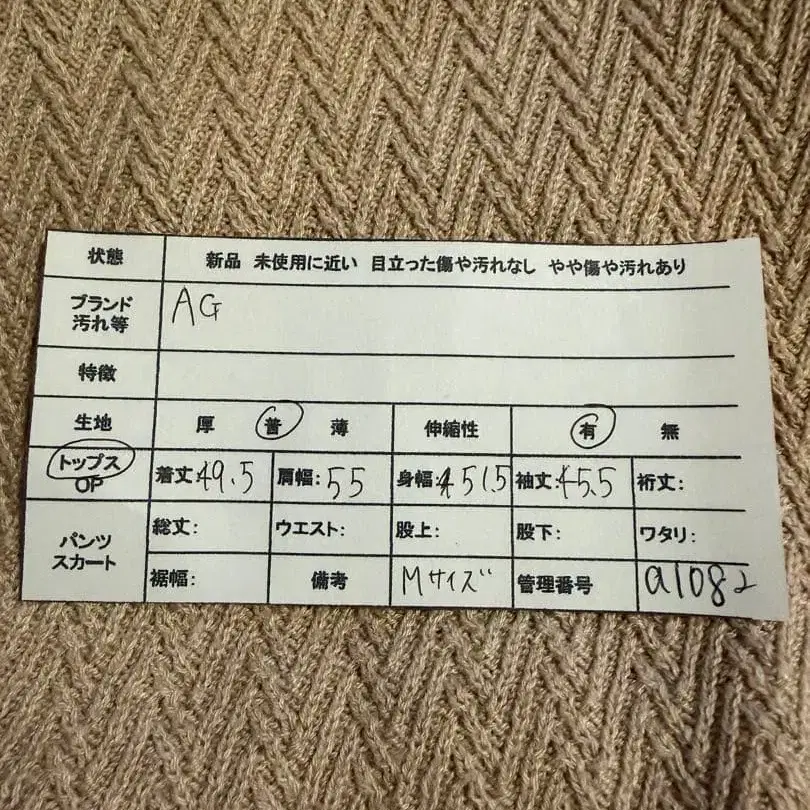 状態 新品 未使用に近い 目立った傷や汚れなし やや傷や汚れあり
ブランド AG
汚れ等
特徴
生地 厚 普 薄 伸縮性 有 無
トップス
OP 着丈:49.5 肩幅:55 身幅:51.5 袖丈:45.5 裄丈:
パンツ
スカート 総丈: ウエスト: 股上: 股下: ワタリ:
裾幅: 備考 Mサイズ 管理番号 a1082